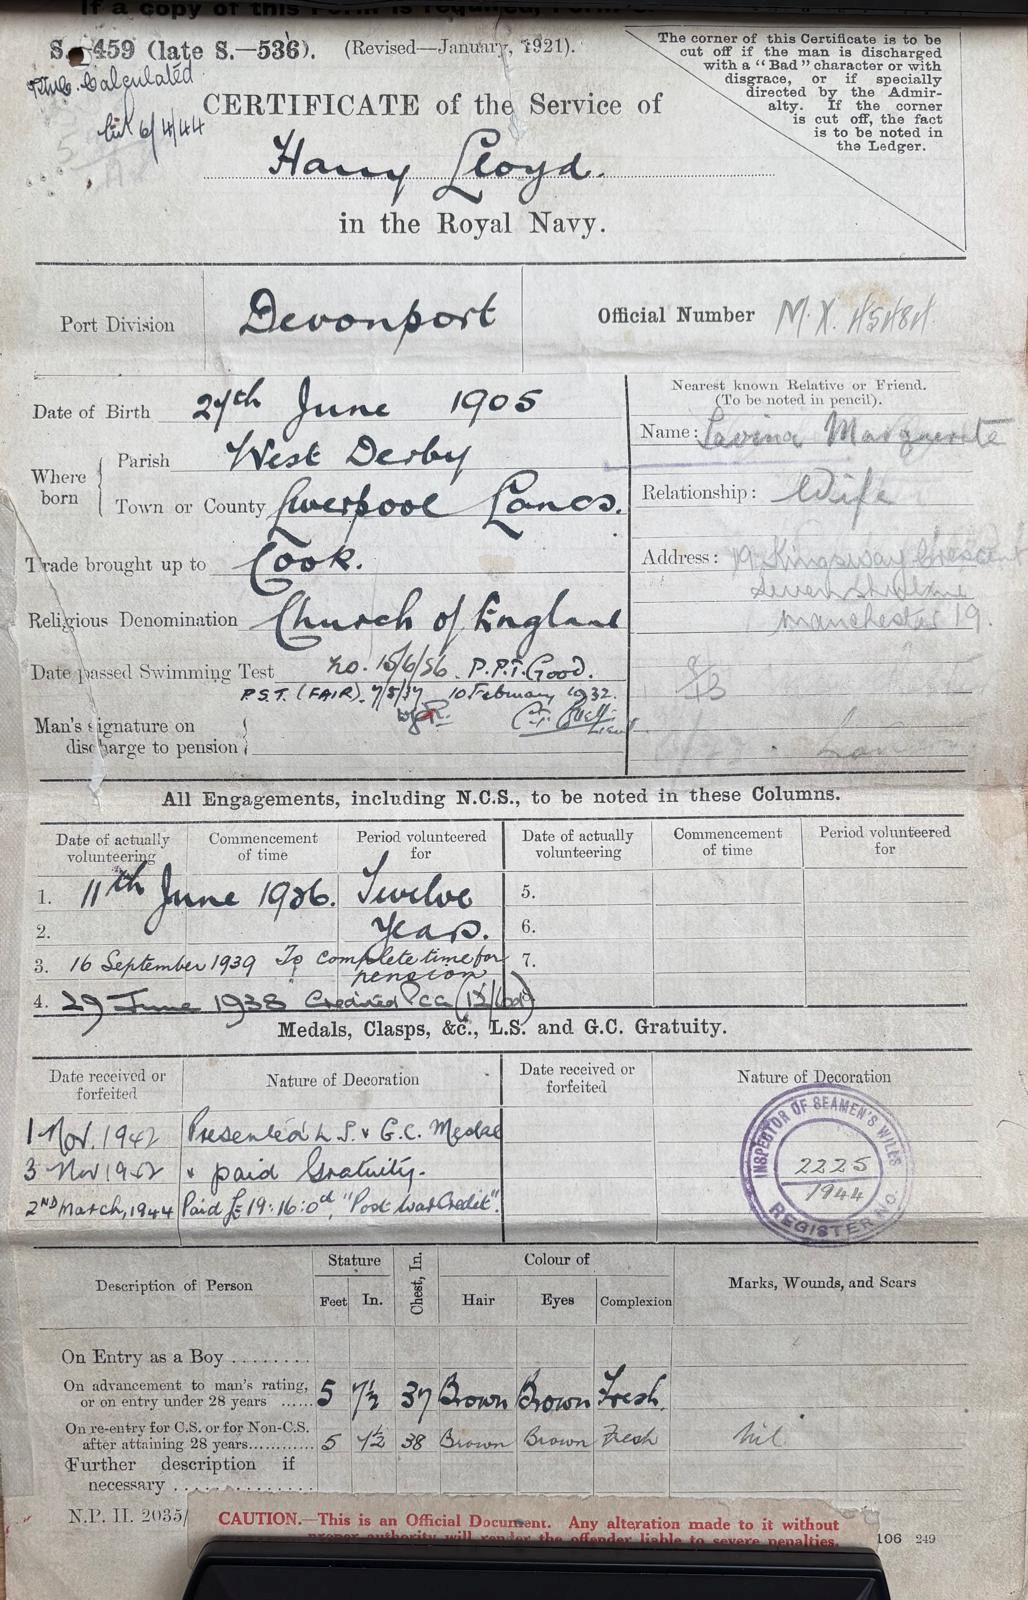 If a copy of this Form is required,
S.—459 (late S.—536). (Revised—January, 1921).
Calculated
6/4/44
The corner of this Certificate is to be
cut off if the man is discharged
with a "Bad" character or with
disgrace, or if specially
directed by the Admir-
alty. If the corner
is cut off, the fact
is to be noted in
the Ledger.
CERTIFICATE of the Service of
Harry Lloyd.
in the Royal Navy.
Port Division Devonport Official Number M.X. 45484
Date of Birth 27th June 1905
Where born { Parish West Derby
Town or County Liverpool Lancs.
Trade brought up to Cook.
Religious Denomination Church of England
Date passed Swimming Test No. 15/6/36. P.P.T. Good.
P.S.T. (FAIR). 7/5/37 10 February 1932.
Lieut
Man's signature on
discharge to pension }
Nearest known Relative or Friend.
(To be noted in pencil).
Name: Lavina Marguerite
Relationship: Wife
Address: 19 Kingsway Crescent
Manchester 19.
All Engagements, including N.C.S., to be noted in these Columns.
Date of actually volunteering Commencement of time Period volunteered for Date of actually volunteering Commencement of time Period volunteered for
1. 11th June 1926. Twelve 5.
2. Years. 6.
3. 16 September 1939 To complete time for pension 7.
4. 29 June 1938 Credited
Medals, Clasps, &c., L.S. and G.C. Gratuity.
Date received or forfeited Nature of Decoration Date received or forfeited Nature of Decoration
1 Nov. 1942 Presented L.S. & G.C. Medal
3 Nov 1942 & paid Gratuity.
2ND March, 1944 Paid £19:16:0d, "Post War Credit".
INSPECTOR OF SEAMEN'S WILLS
2225
1944
REGISTER NO.
Description of Person Stature Chest, In. Colour of Marks, Wounds, and Scars
Feet In. Hair Eyes Complexion
On Entry as a Boy ........
On advancement to man's rating,
or on entry under 28 years ...... 5 7½ 37 Brown Brown Fresh.
On re-entry for C.S. or for Non-C.S.
after attaining 28 years............ 5 7½ 38 Brown Brown Fresh Nil.
Further description if
necessary ..............
N.P. H. 2035/
CAUTION.—This is an Official Document. Any alteration made to it without
proper authority will render the offender liable to severe penalties.
106 249